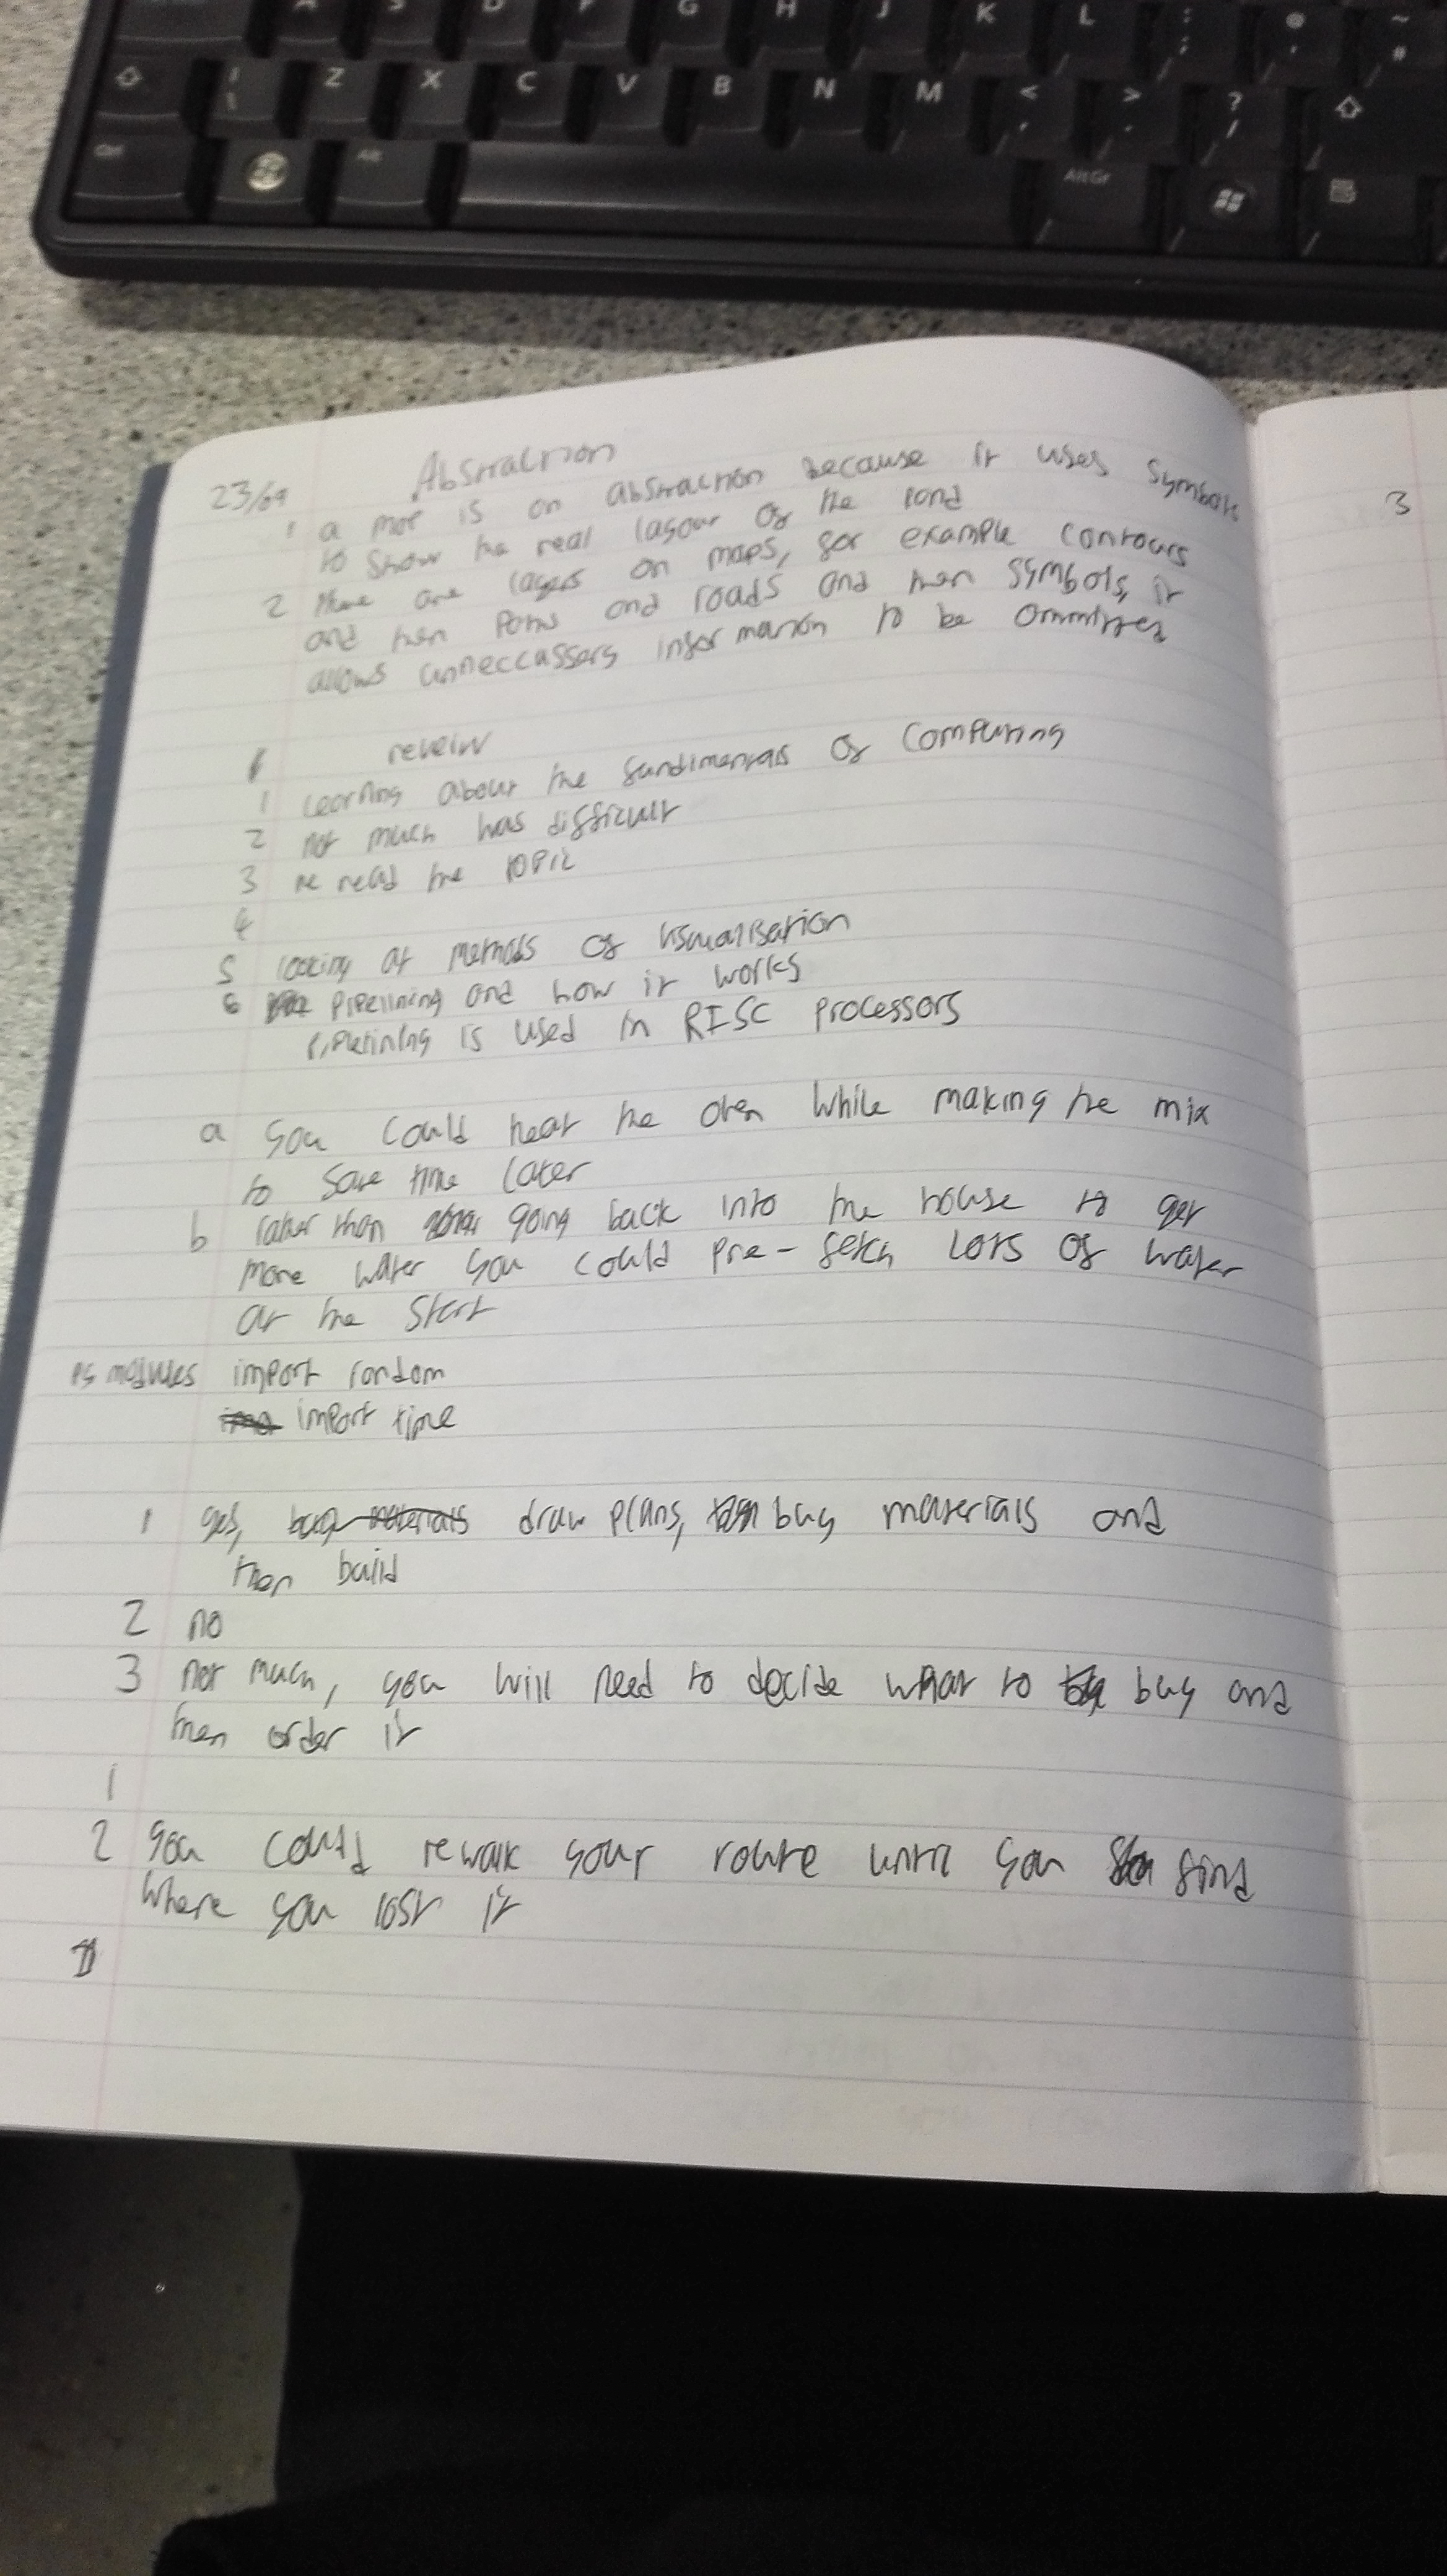 A S D F G H J K L : ; @ ' ~ #
| \ Z X C V B N M < , > . ? /
Ctrl Alt Alt Gr
23/09 Abstraction
1 a map is an abstraction because it uses symbols
to show the real layout of the land
2 there are layers on maps, for example contours
and then paths and roads and then symbols, it
allows unneccassery information to be ommitted
reveiw
1 learning about the fundimentals of computing
2 not much was difficult
3 re read the topic
4
5 looking at methods of visualisation
6 pipelining and how it works
pipelining is used in RISC processors
a you could heat the oven while making the mix
to save time later
b rather than going back into the house to get
more water you could pre-fetch lots of water
at the start
py modules import random
import time
1 yes, buy materials draw plans, buy materials and
then build
2 no
3 not much, you will need to decide what to buy and
then order it
1
2 you could rewalk your route until you find
where you lost it
3